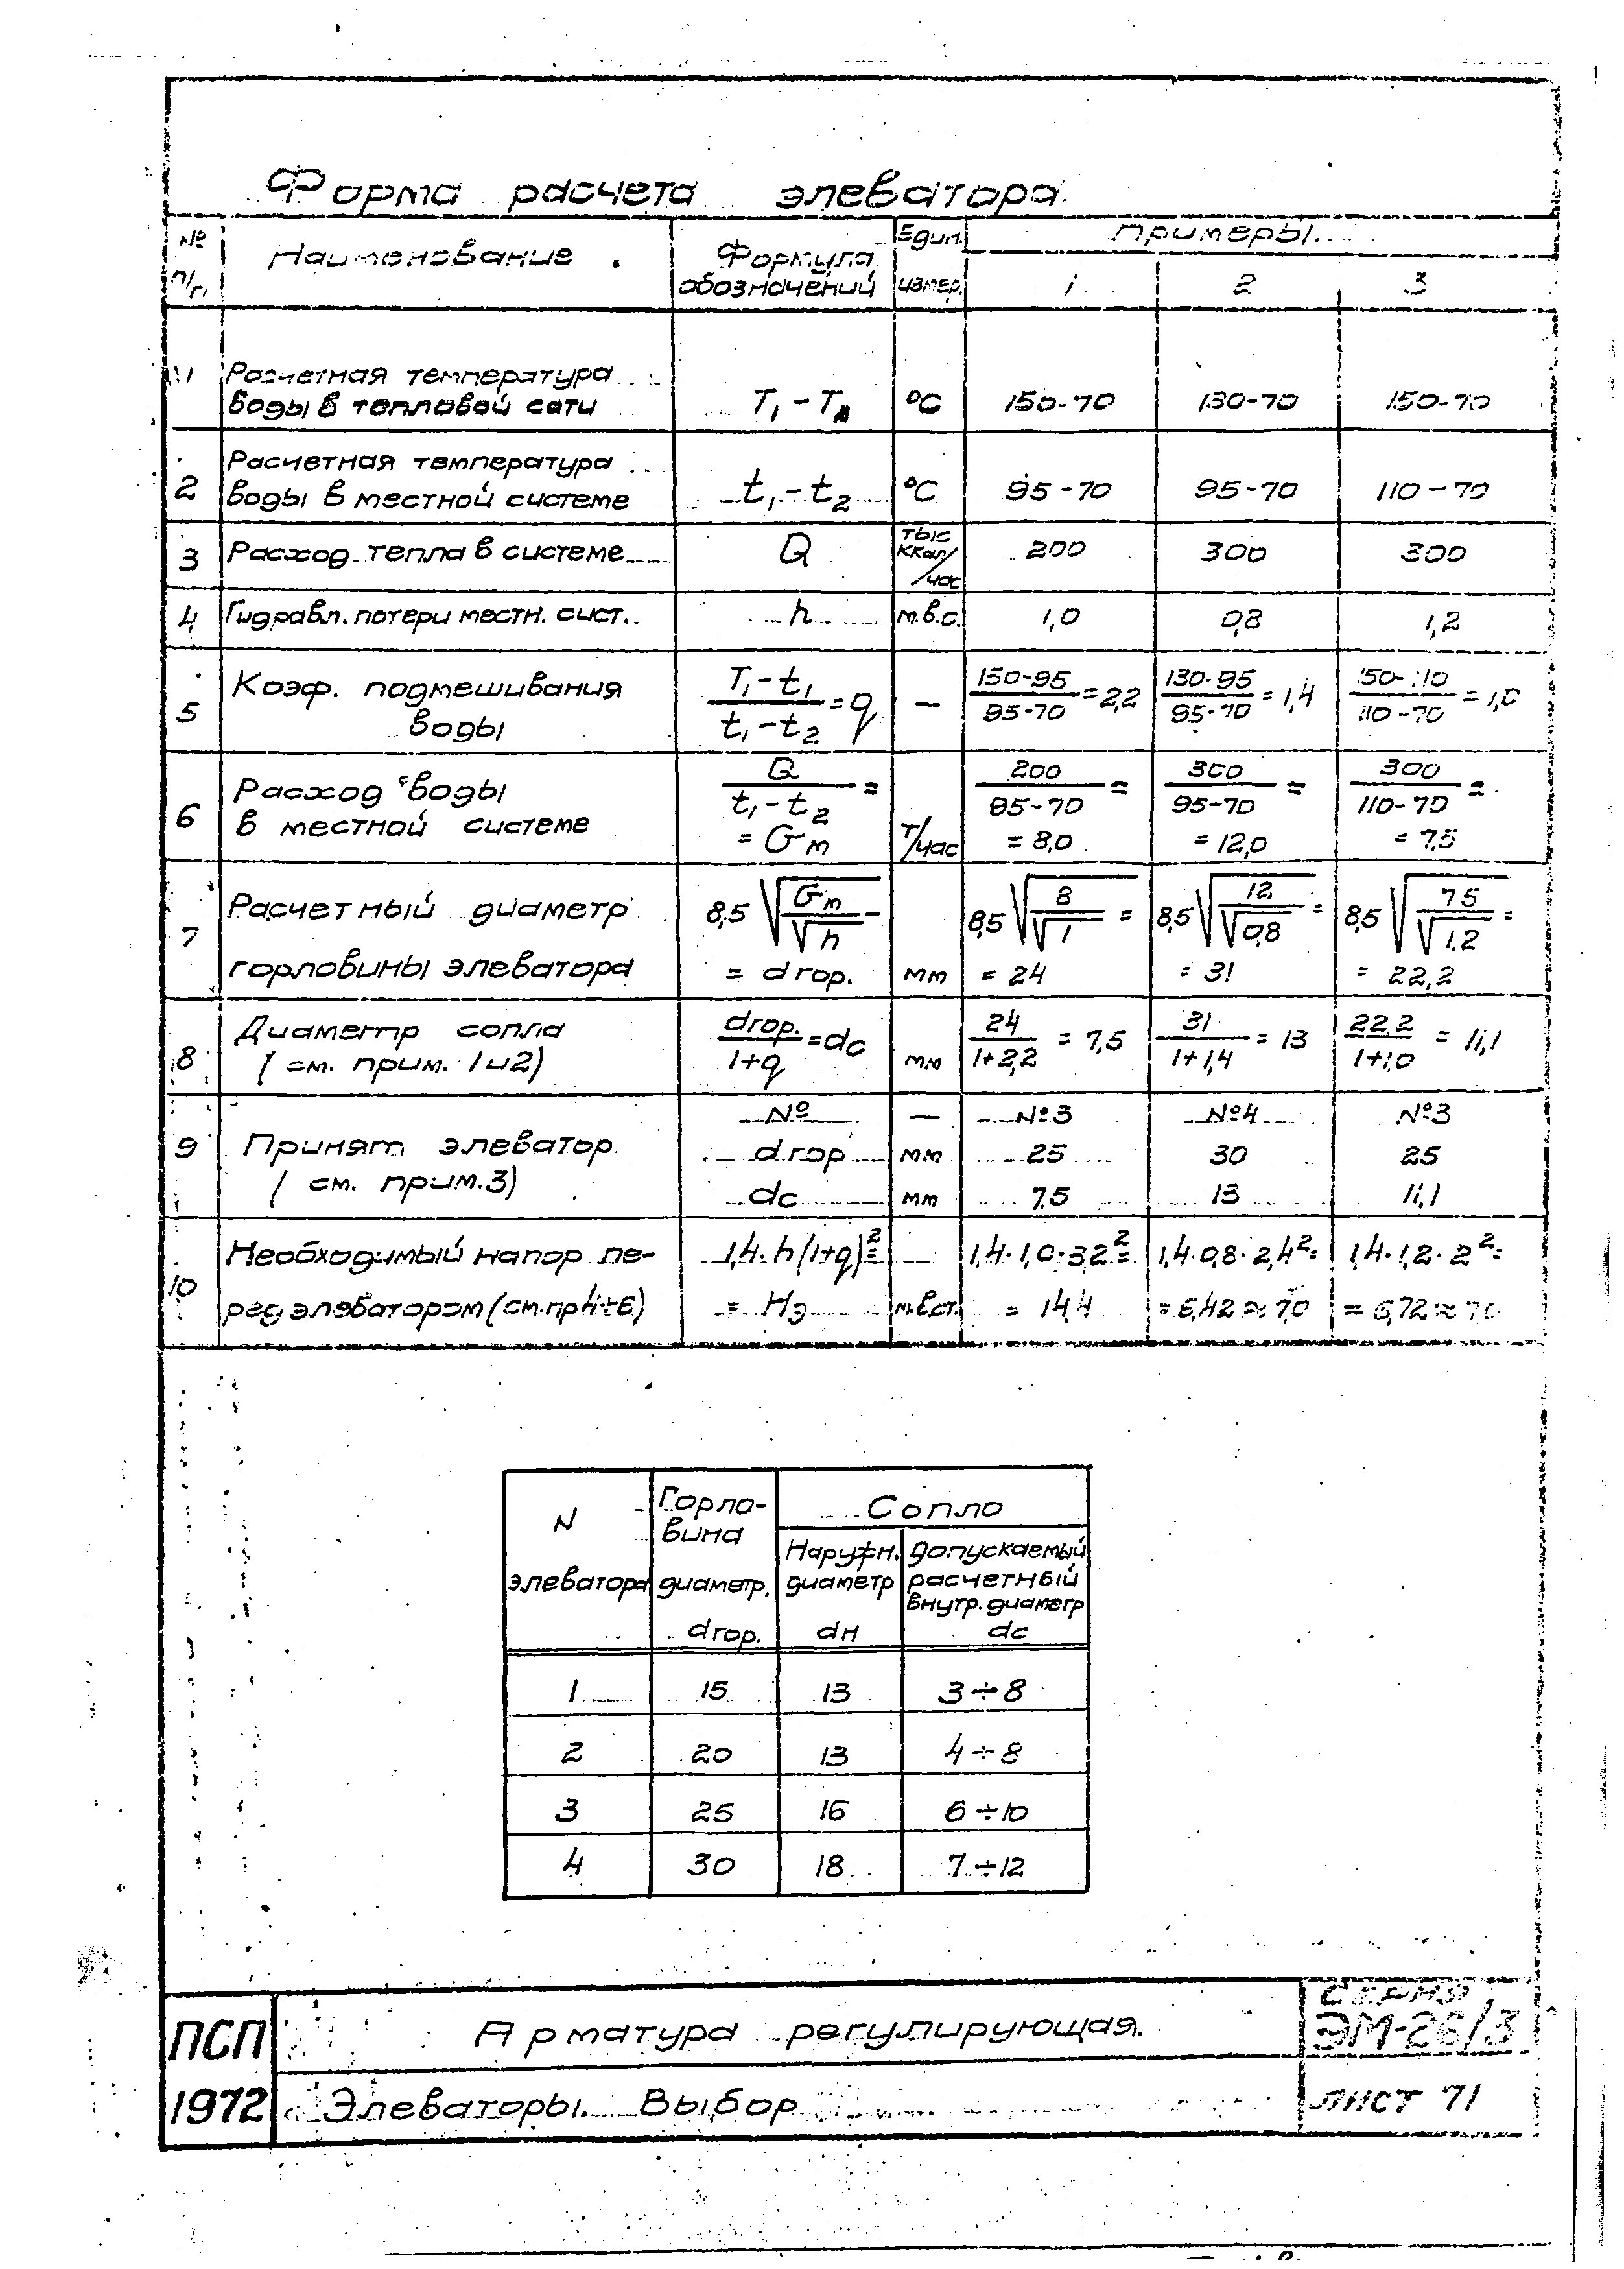 Форма расчета элеватора.
№ п/п. Наименование. Формула обозначений Един. измер. Примеры.
1 2 3
1 Расчетная температура воды в тепловой сети T₁-T₂ °C 150-70 130-70 150-70
2 Расчетная температура воды в местной системе t₁-t₂ °C 95-70 95-70 110-70
3 Расход тепла в системе Q тыс ккал/час 200 300 300
4 Гидравл. потери местн. сист. h м.в.с. 1,0 0,8 1,2
5 Коэф. подмешивания воды (T₁-t₁)/(t₁-t₂)=q — (150-95)/(95-70)=2,2 (130-95)/(95-70)=1,4 (150-110)/(110-70)=1,0
6 Расход воды в местной системе Q/(t₁-t₂)= =Gм т/час 200/(95-70)= =8,0 300/(95-70)= =12,0 300/(110-70)= =7,5
7 Расчетный диаметр горловины элеватора 8,5√(Gм/√h)= =dгор. мм 8,5√(8/√1)= =24 8,5√(12/√0,8)= =31 8,5√(7,5/√1,2)= =22,2
8 Диаметр сопла (см. прим. 1и2) dгор./(1+q)=dс мм 24/(1+2,2)=7,5 31/(1+1,4)=13 22,2/(1+1,0)=11,1
9 Принят элеватор (см. прим.3) № — №3 №4 №3
dгор мм 25 30 25
dс мм 7,5 13 11,1
10 Необходимый напор пе-
ред элеватором (см.пр4÷6) 1,4·h(1+q)²= =Hэ м.в.ст. 1,4·1,0·3,2²= =14,4 1,4·0,8·2,4²= =6,42≈7,0 1,4·1,2·2²= =6,72≈7,0
N элеватора Горло-
вина диаметр, dгор. Сопло
Наружн. диаметр dн Допускаемый расчетный внутр. диаметр dс
1 15 13 3÷8
2 20 13 4÷8
3 25 16 6÷10
4 30 18 7÷12
ПСП Арматура регулирующая. СЕРИЯ ЭМ-26/3
1972 Элеваторы. Выбор ЛИСТ 71